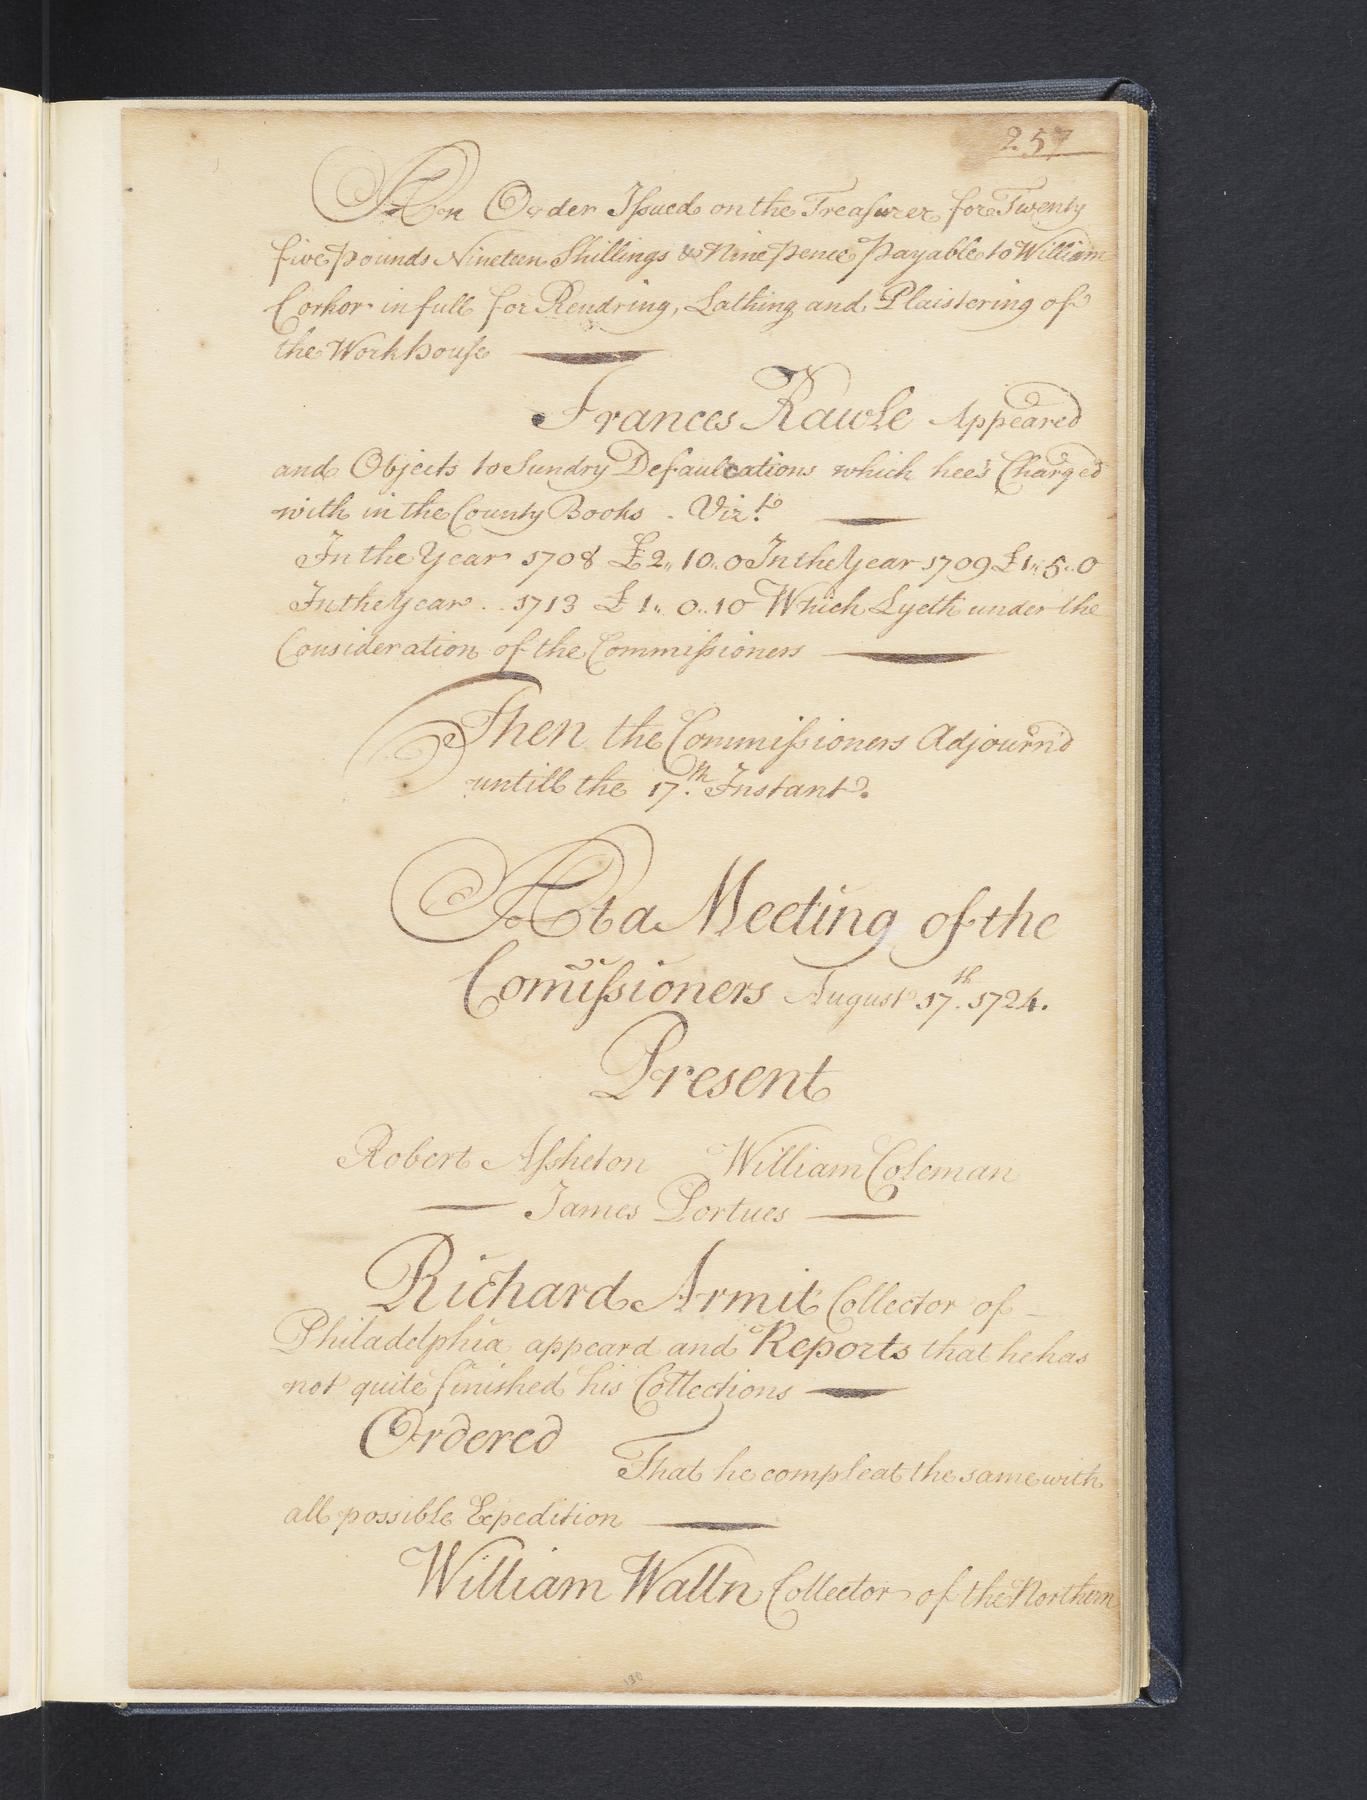 257
An Order Issued on the Treasurer for Twenty
five pounds Nineteen Shillings & Nine pence Payable to William
Corker in full for Rendring, Lathing and Plaistering of
the Workhouse
Frances Rawle Appeared
and Objects to Sundry Defaulcations which hee's Charged
with in the County Books . Viz.t
In the Year 1708 £2,, 10..0 In the Year 1709 £1,,5..0
In the Year .. 1713 £1,, 0..10 Which Lyeth under the
Consideration of the Commissioners
Then the Commissioners Adjourn'd
untill the 17.th Instant.
At a Meeting of the
Comissioners August 17.th 1724.
Present
Robert Assheton William Coleman
James Portues
Richard Armit Collector of
Philadelphia appeard and Reports that he has
not quite finished his Collections
Ordered
That he compleat the same with
all possible Expedition
William Walln Collector of the Northern
130